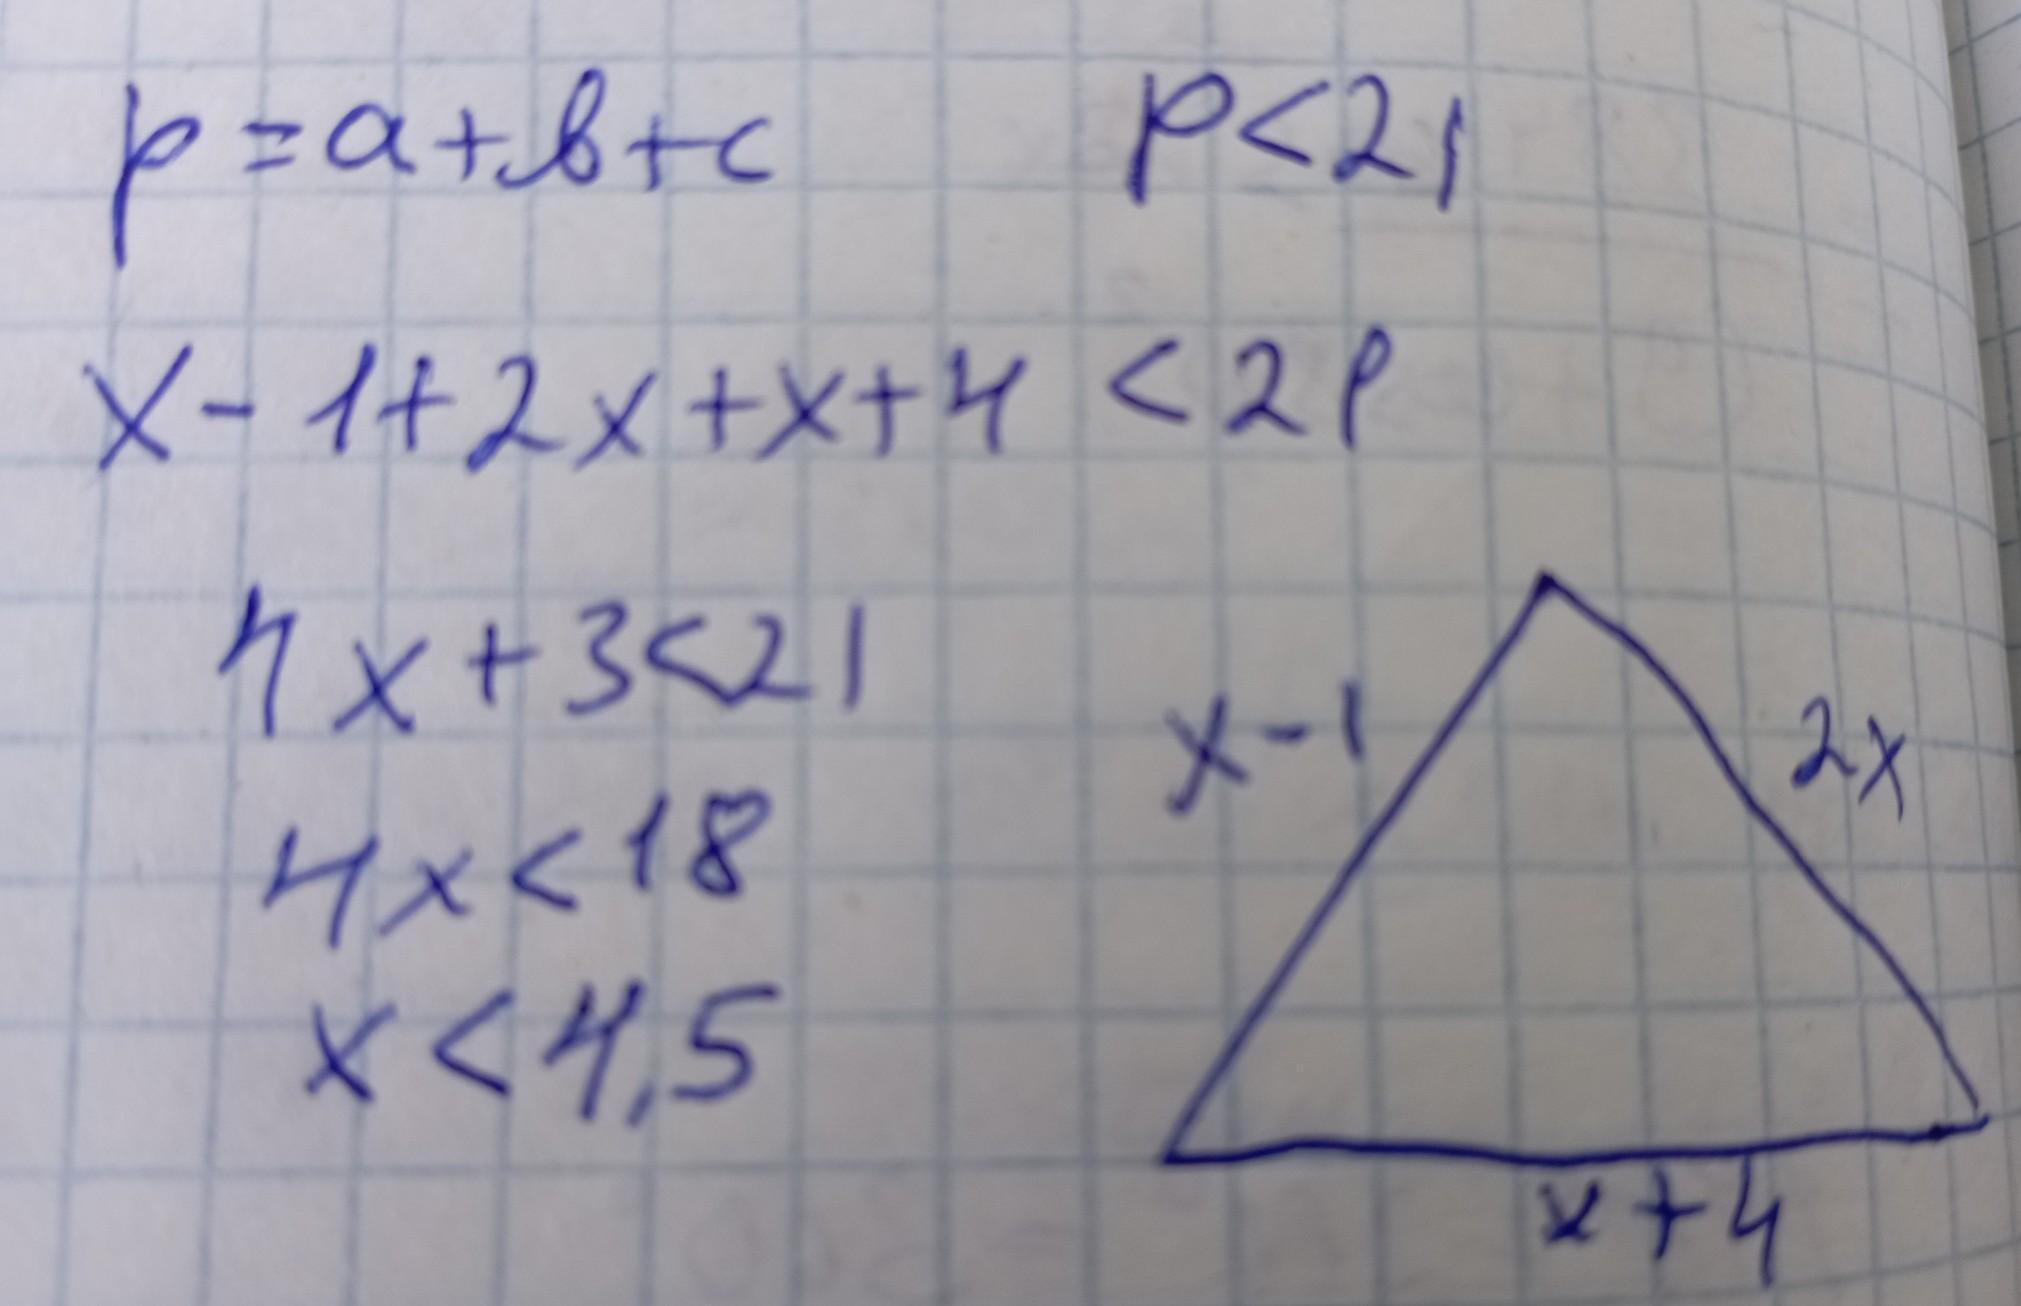 p=a+b+c p<21
x-1+2x+x+4<21
4x+3<21
4x<18
x<4,5
x-1
2x
x+4